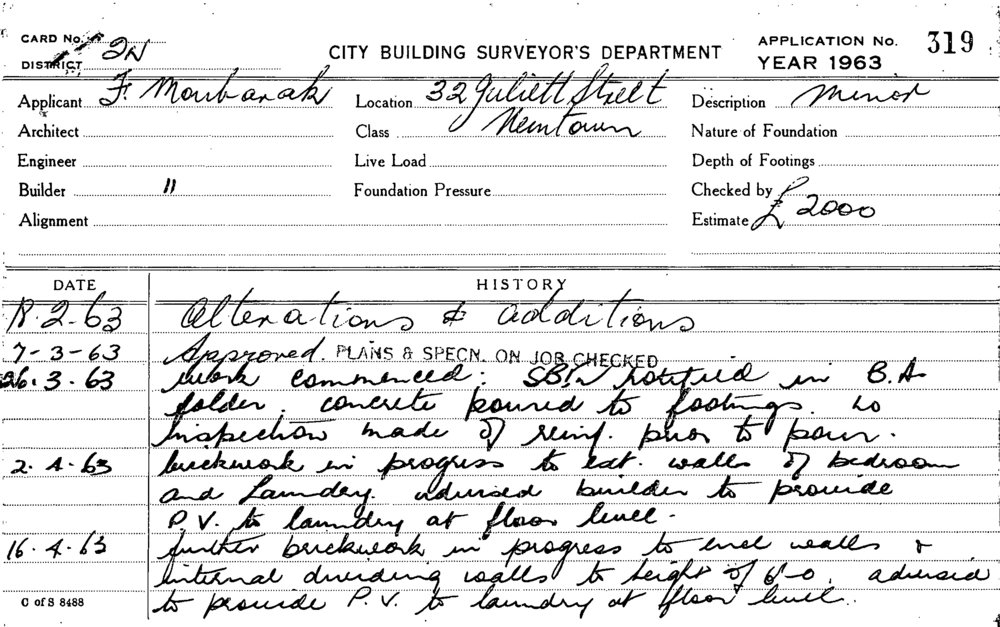 CARD No.
DISTRICT 2N
CITY BUILDING SURVEYOR'S DEPARTMENT
APPLICATION No. 319
YEAR 1963
Applicant F. Moubarak
Location 32 Juliett Street
Description Minor
Architect
Class Newtown
Nature of Foundation
Engineer
Live Load
Depth of Footings
Builder "
Foundation Pressure
Checked by
Alignment
Estimate £ 2000
DATE HISTORY
18.2.63 Alterations & additions
7-3-63 Approved. PLANS & SPECN. ON JOB CHECKED
26.3.63 Work commenced: notified in B.A
folder. concrete poured to footings. no
inspection made of reinf. prior to pour.
2.4.63 brickwork in progress to ext. walls of bedroom
and Laundry. advised builder to provide
P.V. to laundry at floor level.
16.4.63 further brickwork in progress to encl walls &
internal dividing walls to height of 6'-0. advised
to provide P.V. to laundry at floor level.
C of S 8488